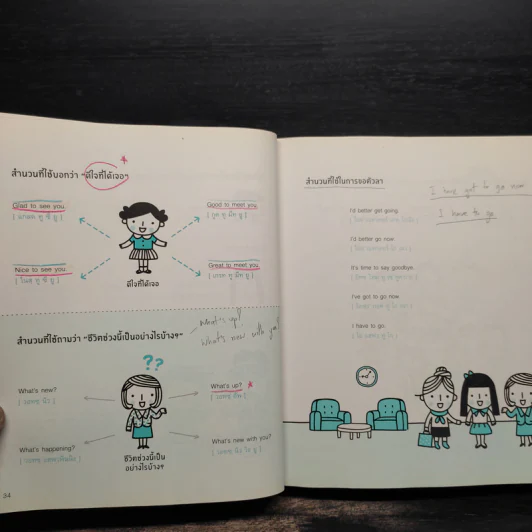 สำนวนที่ใช้บอกว่า "ดีใจที่ได้เจอ"
Glad to see you.
( แกลด ทู ซี ยู )
Good to meet you.
( กูด ทู มีท ยู )
Nice to see you.
( ไนซ ทู ซี ยู )
Great to meet you.
( เกรท ทู มีท ยู )
ดีใจที่ได้เจอ
สำนวนที่ใช้ถามว่า "ชีวิตช่วงนี้เป็นอย่างไรบ้าง"
What's up?
What's new with you?
??
What's new?
What's up?
What's happening?
What's new with you?
ชีวิตช่วงนี้เป็น
อย่างไรบ้าง
34
สำนวนที่ใช้ในการขอตัวลา
I have got to go now
I have to go
I'd better get going.
I'd better go now.
It's time to say goodbye.
I've got to go now.
I have to go.